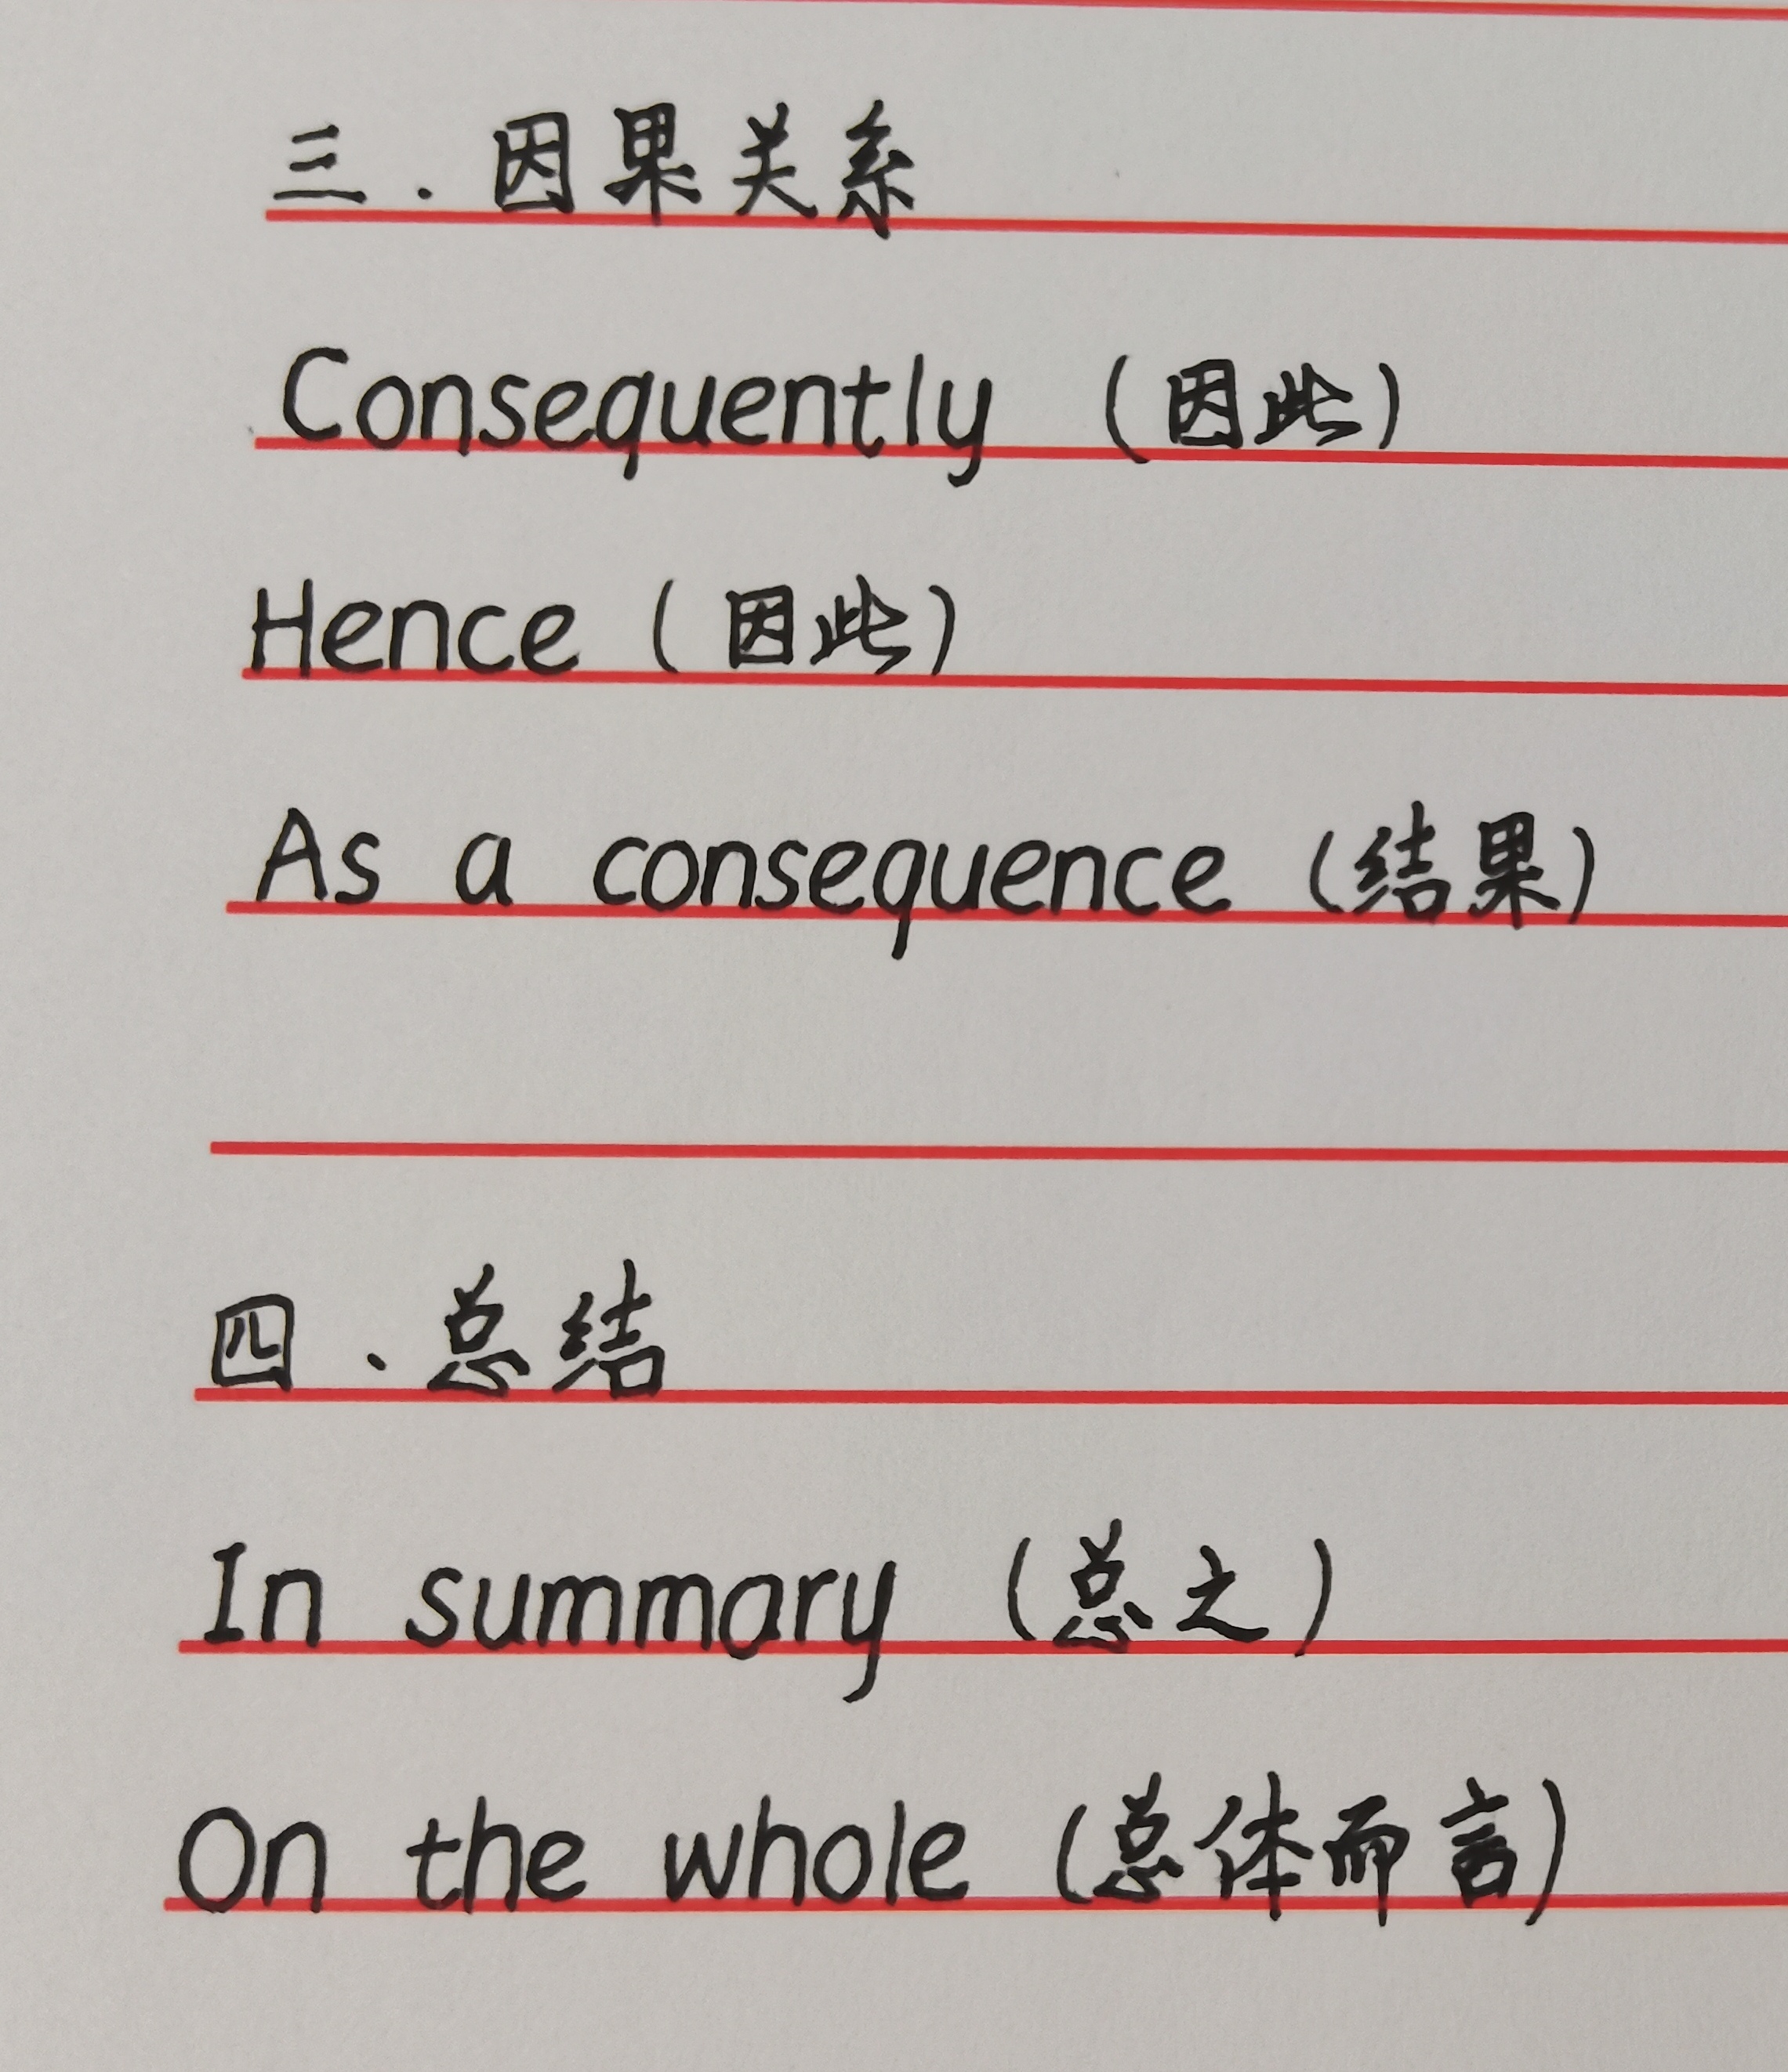 三.因果关系
Consequently (因此)
Hence (因此)
As a consequence (结果)
四、总结
In summary (总之)
On the whole (总体而言)